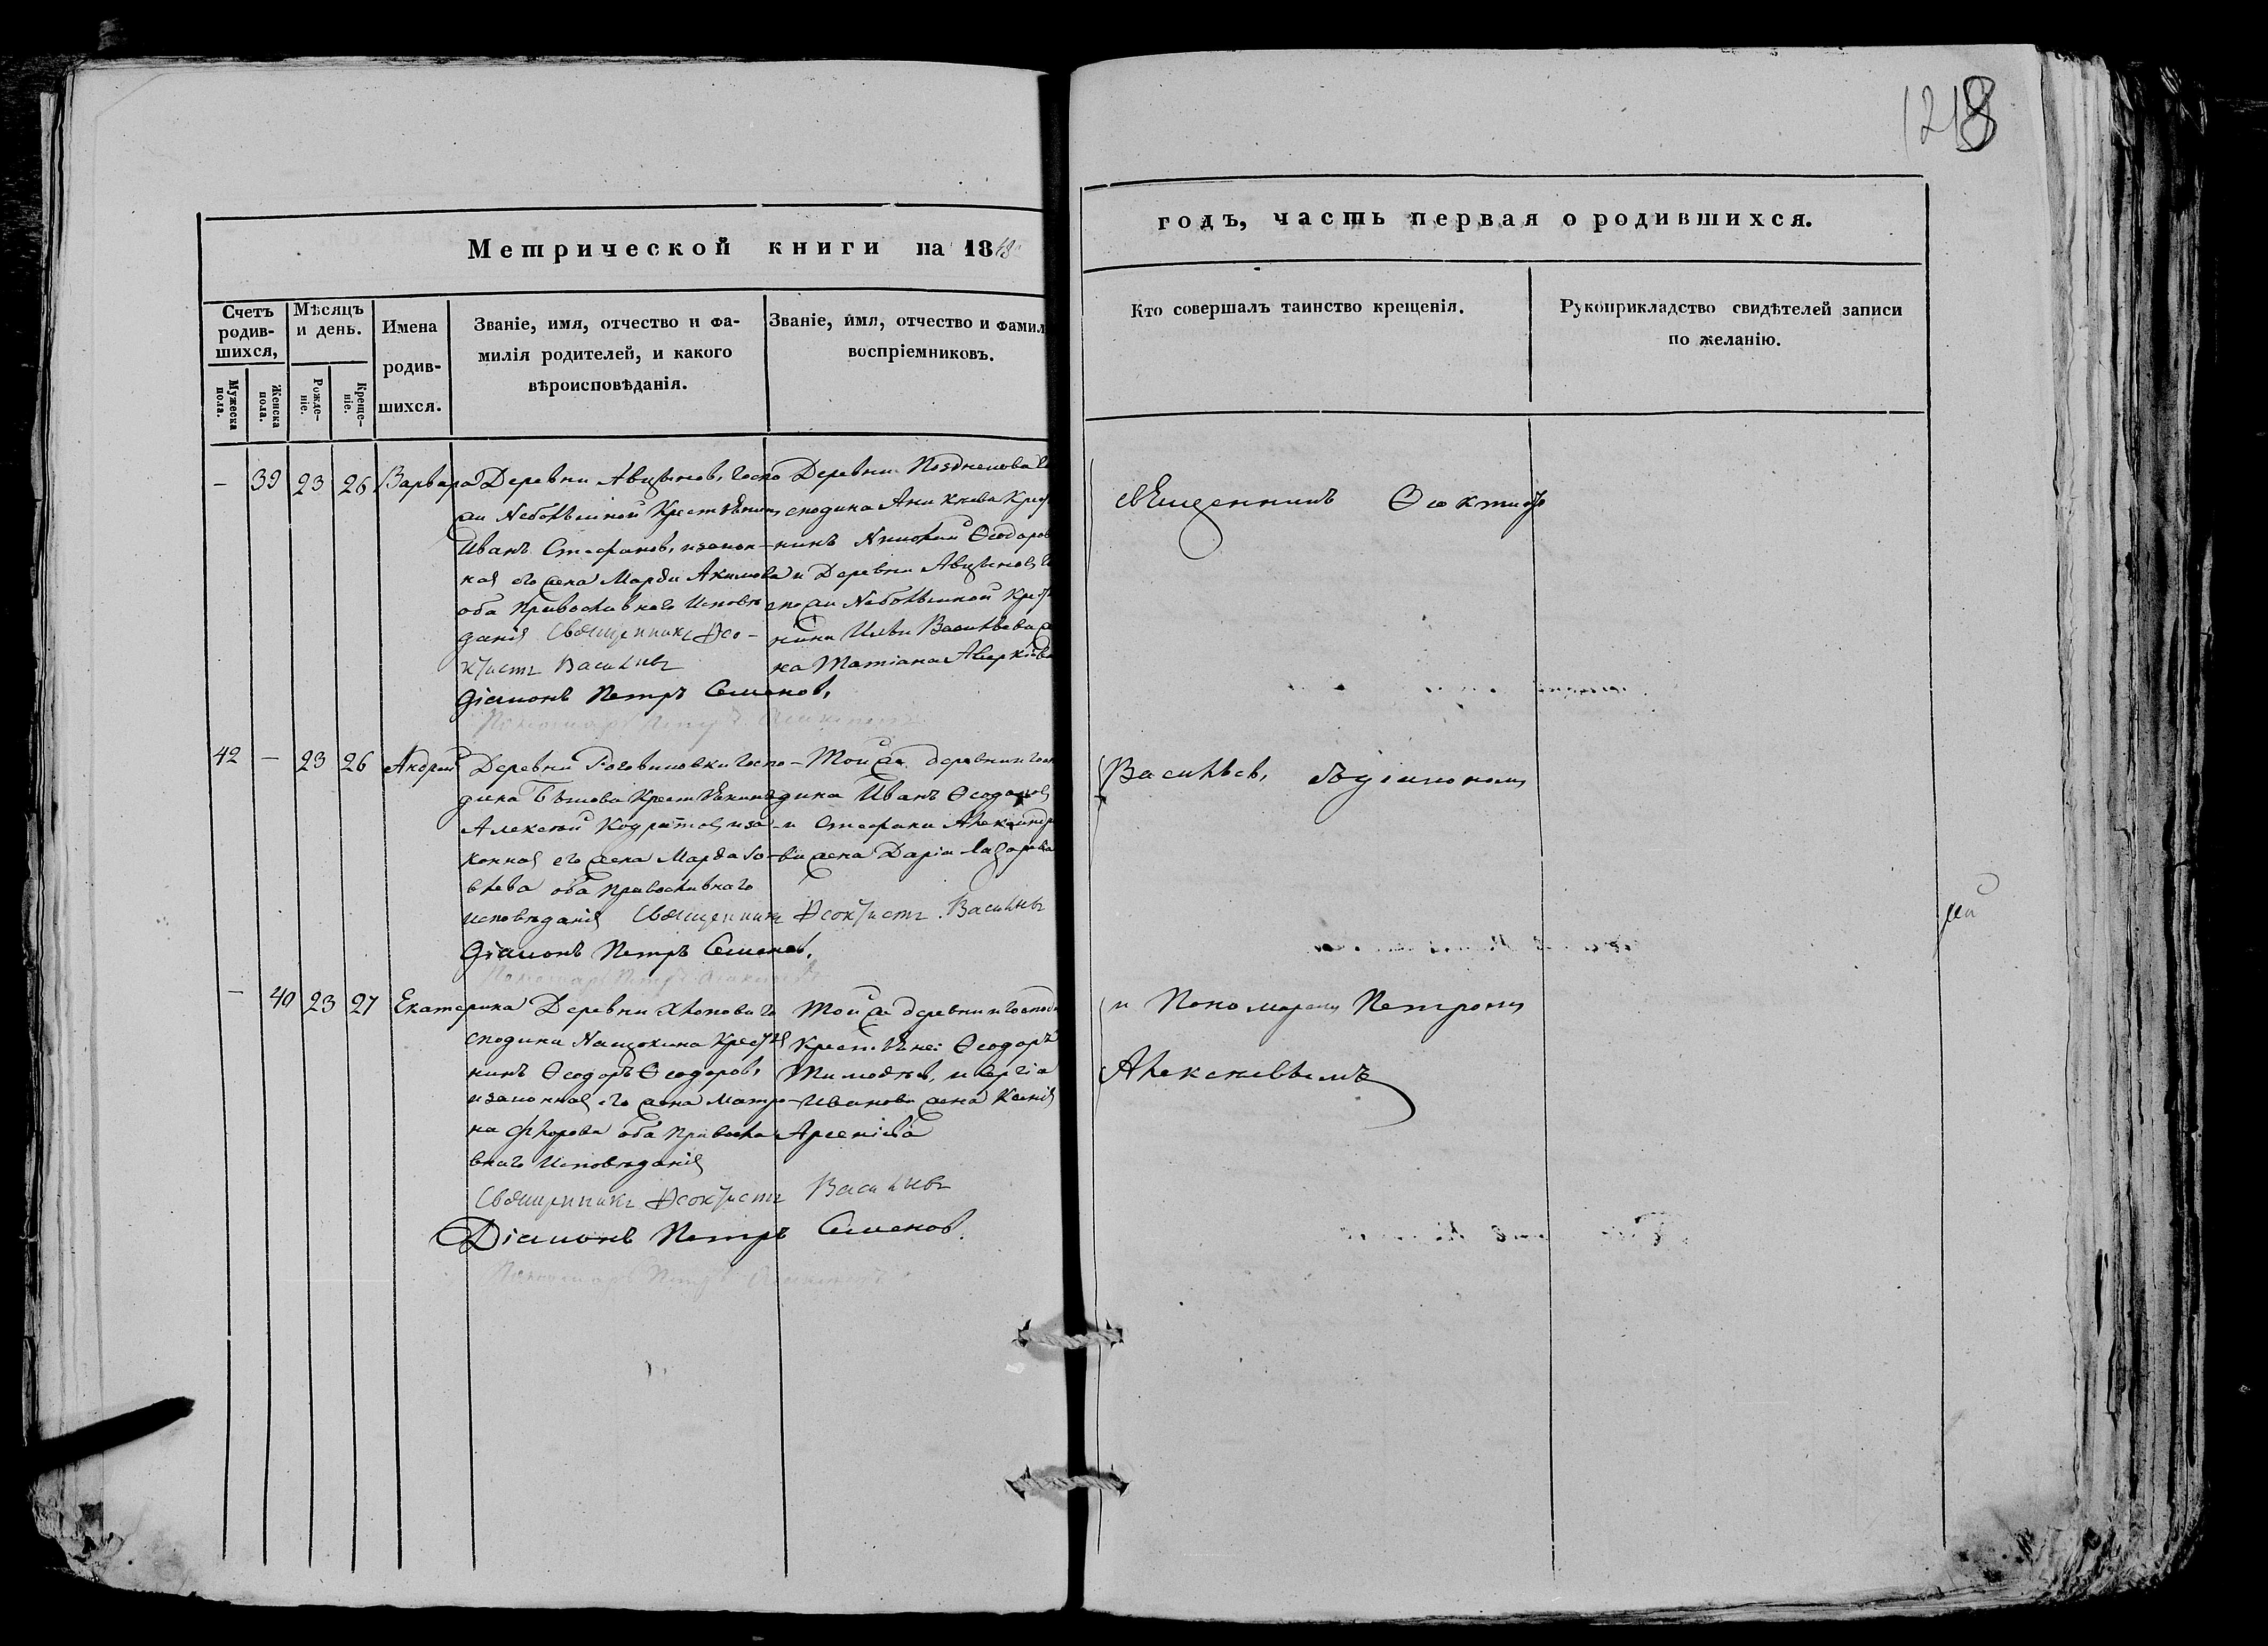 1218
Метрической книги на 1843
годъ, часть первая о родившихся.
Счетъ родив-шихся,
Мужеска пола.
Женска пола.
Мѣсяцъ и день.
Рожде-ніе.
Креще-ніе.
Имена родив-шихся.
Званіе, имя, отчество и фа-
милія родителей, и какого
вѣроисповѣданія.
Званіе, имя, отчество и фамил
воспріемниковъ.
Кто совершалъ таинство крещенія.
Рукоприкладство свидѣтелей записи
по желанію.
— 39 23 26 Варвара
Деревни Госпо
жи Крестьянинъ
Иванъ Стефановъ, и закон-
ная его жена Марѳа Акимова
оба Православнаго Исповѣ
данія Священникъ Ѳео-
ктистъ Васильевъ
Діаконъ Петръ Семеновъ,
Пономарь Петръ Алексѣевъ
Деревни
сподина Аникѣева Крест
нинъ Ѳеодоров
и Деревни
спожи
нина Ильи Васильева ж
на Татіана Аверкіева
Священникъ Ѳеоктистъ
42 — 23 26 Андрей
Деревни Роговиковки Госпо-
дина Крестьянинъ
Алексѣй и за-
конная его жена Марѳа Яко-
влева оба Православнаго
исповѣданія Священникъ Ѳеоктистъ Васильевъ
Діаконъ Петръ Семеновъ,
Пономарь Петръ Алексѣевъ
Той же деревни и госп
дина Иванъ Ѳеодоровъ
и Стефана Александро
ва жена Дарія Лазарева
Васильевъ, съ діакономъ
— 40 23 27 Екатерина
Деревни Хлопова Го
сподина Нащокина Крестья
нинъ Ѳеодоръ Ѳеодоровъ,
и законная его жена Матро-
на Флорова оба Правосла
внаго Исповѣданія
Священникъ Ѳеоктистъ Васильевъ
Діаконъ Петръ Семеновъ.
Пономарь Петръ Алексѣевъ
Той же деревни и господи
Крестьяне: Ѳеодоръ
Тимоѳѣевъ, и Сергія
Иванова жена Ксенія
Арсеніева
и Пономаремъ Петромъ
Алексѣевымъ